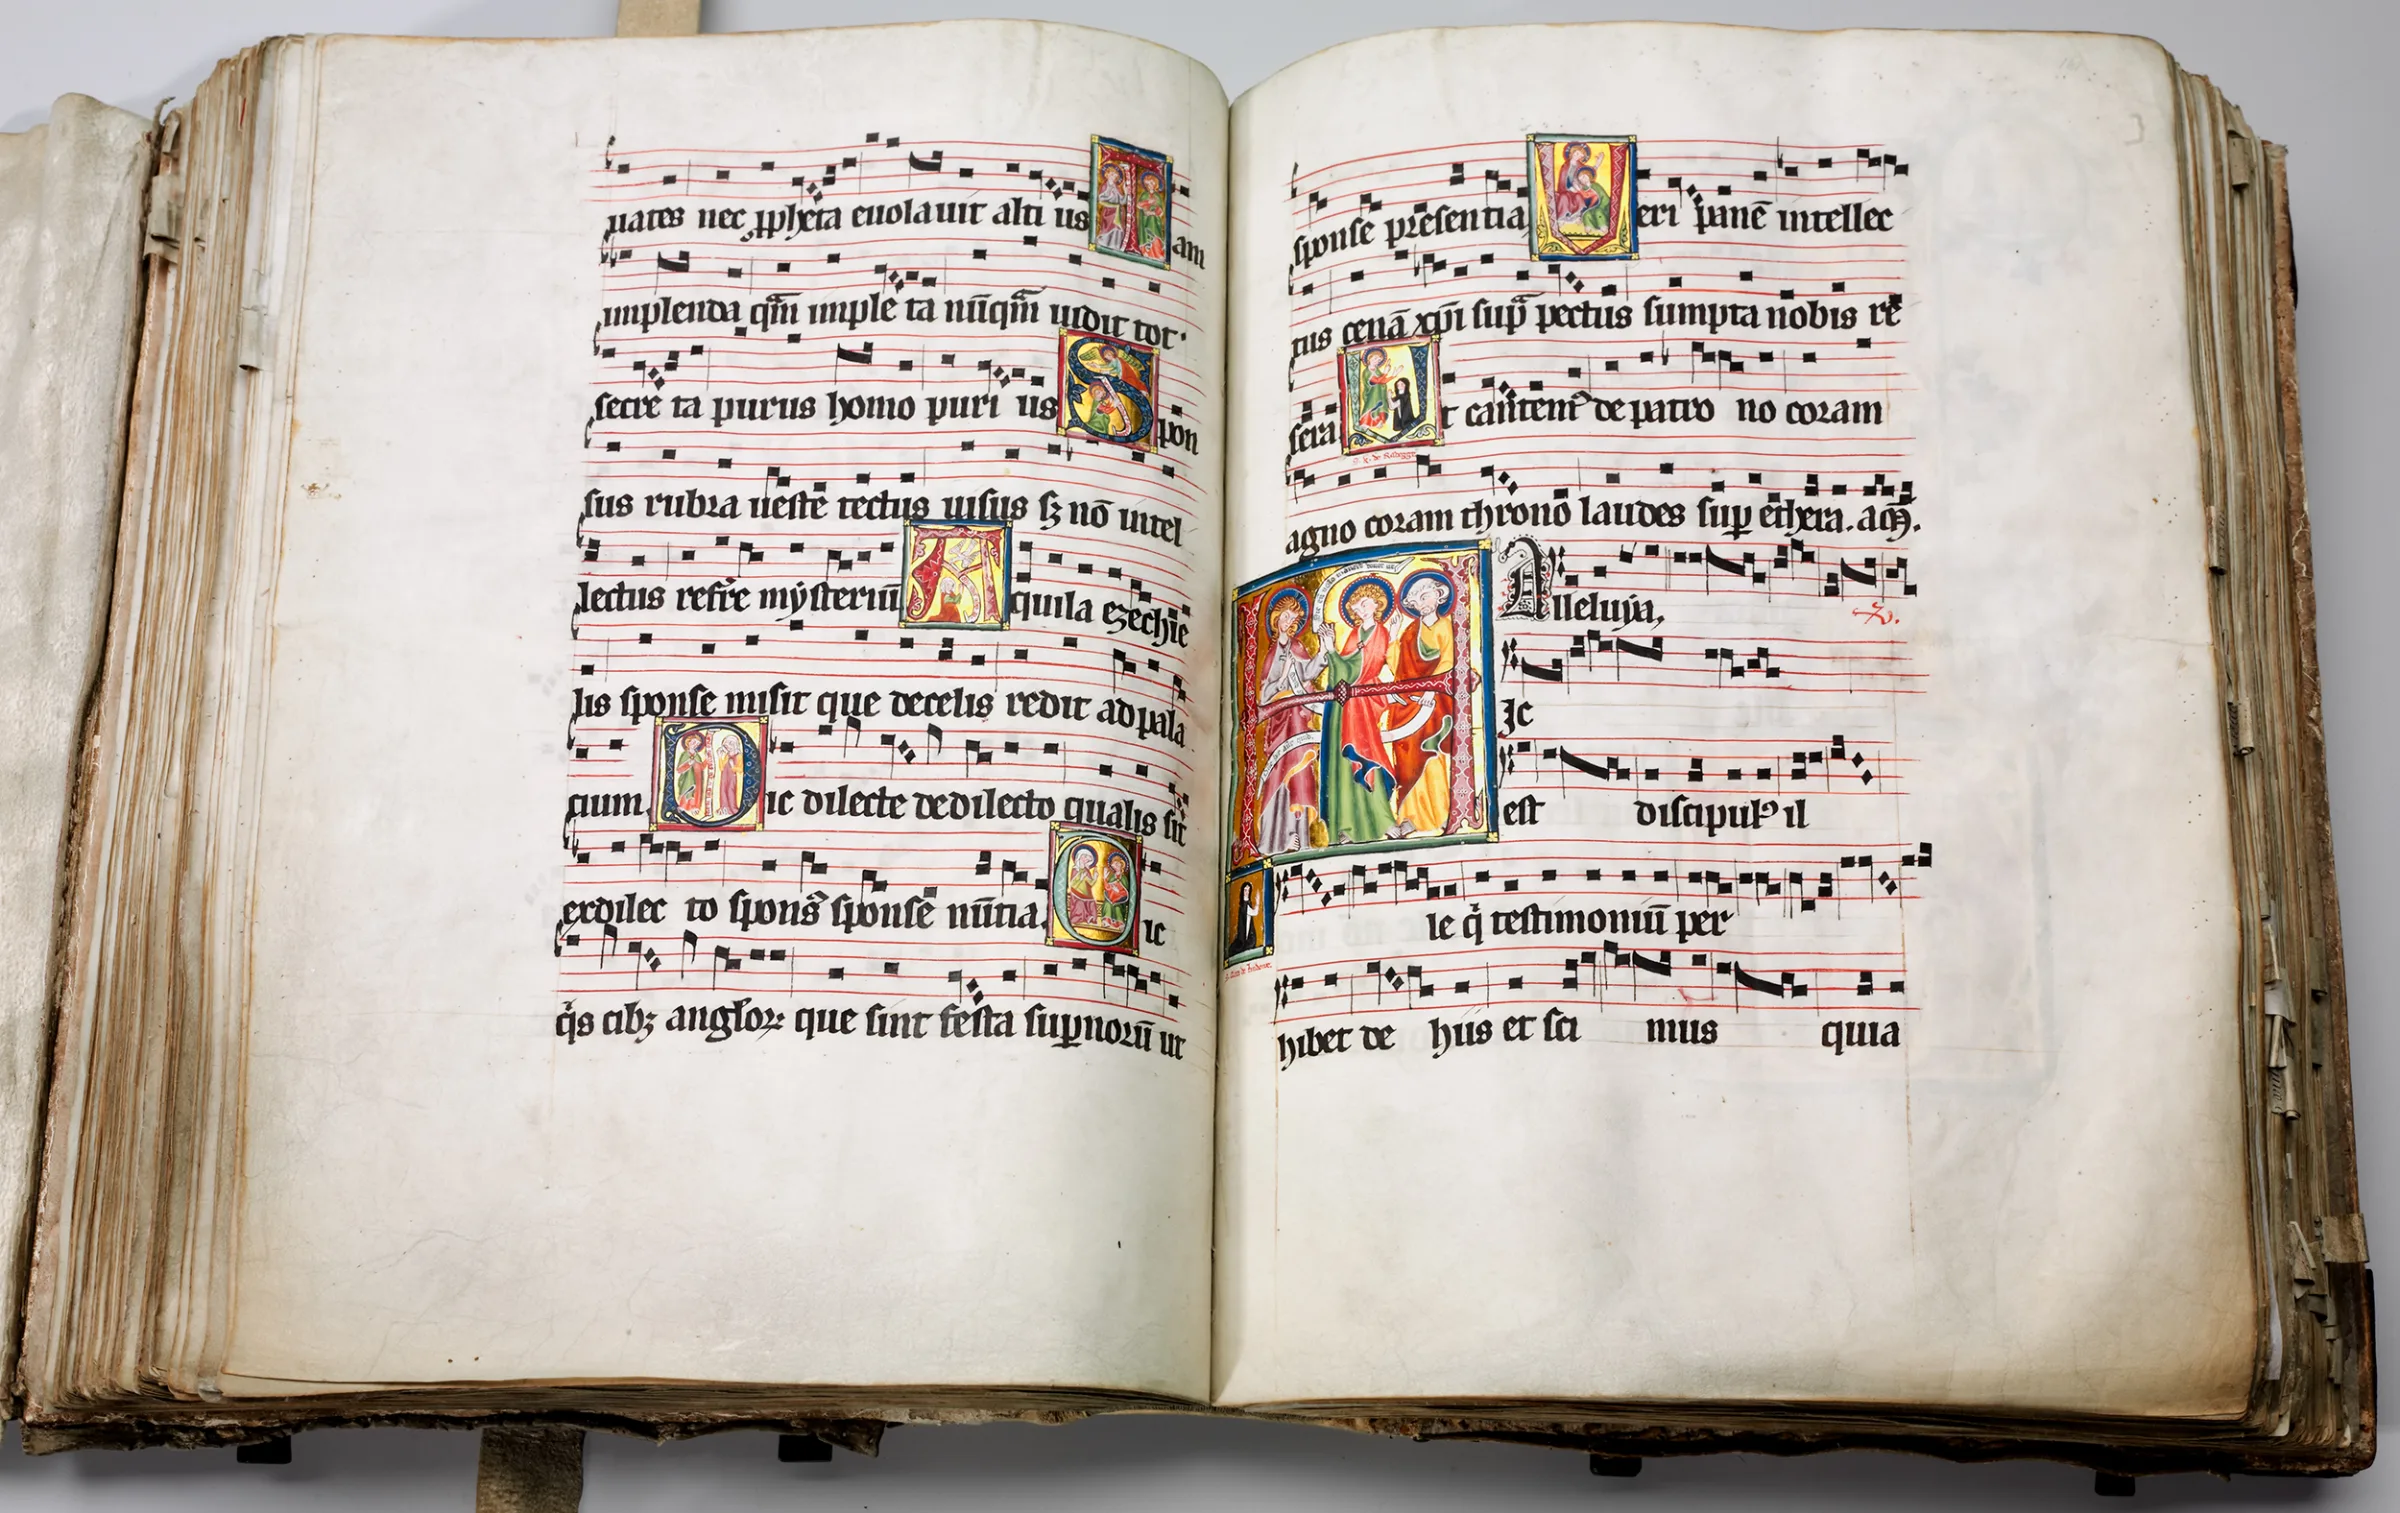 uates nec ꝓpheta euolauit alti us Tam
implenda qm̄ imple ta nūqm̄ uidit tot·
secre ta purus homo puri us Spon
sus rubra ueste tectus uisus sꝫ nō intel
lectus refr̄e mẏsteriū Aquila ezechie
lis sponse misit que decelis redit ad pala
cium. Dic dilecte dedilecto qualis sit
erdilec to spons̄ sponse nūtia. Dic
qͥs cibꝫ angloꝝ que sint festa suꝑnorū ut
sponse presentia Ueri panē intellec
tus cenā xp̄i sup̄ pectus sumpta nobis re
sera Ut cantemꝰ de patro no coram
agno coram throno laudes suꝑ ethera. am̄.
Alleluja,
℣.
Hic
est discipulꝰ il
le qͥ testimoniū per
hibet de hiis et sci mus quia